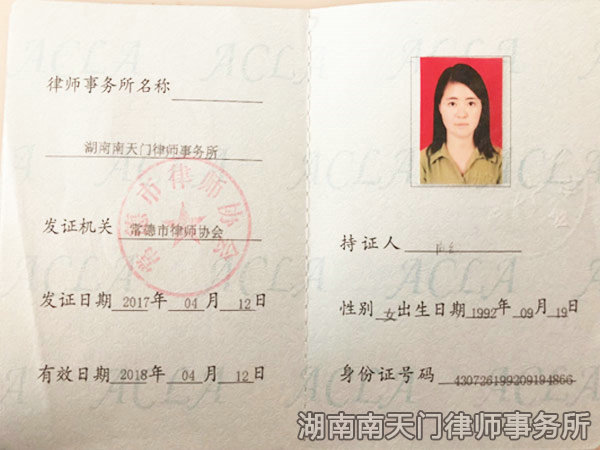 律师事务所名称
湖南南天门律师事务所
发证机关 常德市律师协会
常德市律师协会
发证日期 2017年 04 月 12 日
有效日期 2018年 04 月 12 日
持证人
性别 女 出生日期 1992年 09月 19日
身份证号码 430726199209194866
ACLA
ACLA
ACLA
ACLA
湖南南天门律师事务所